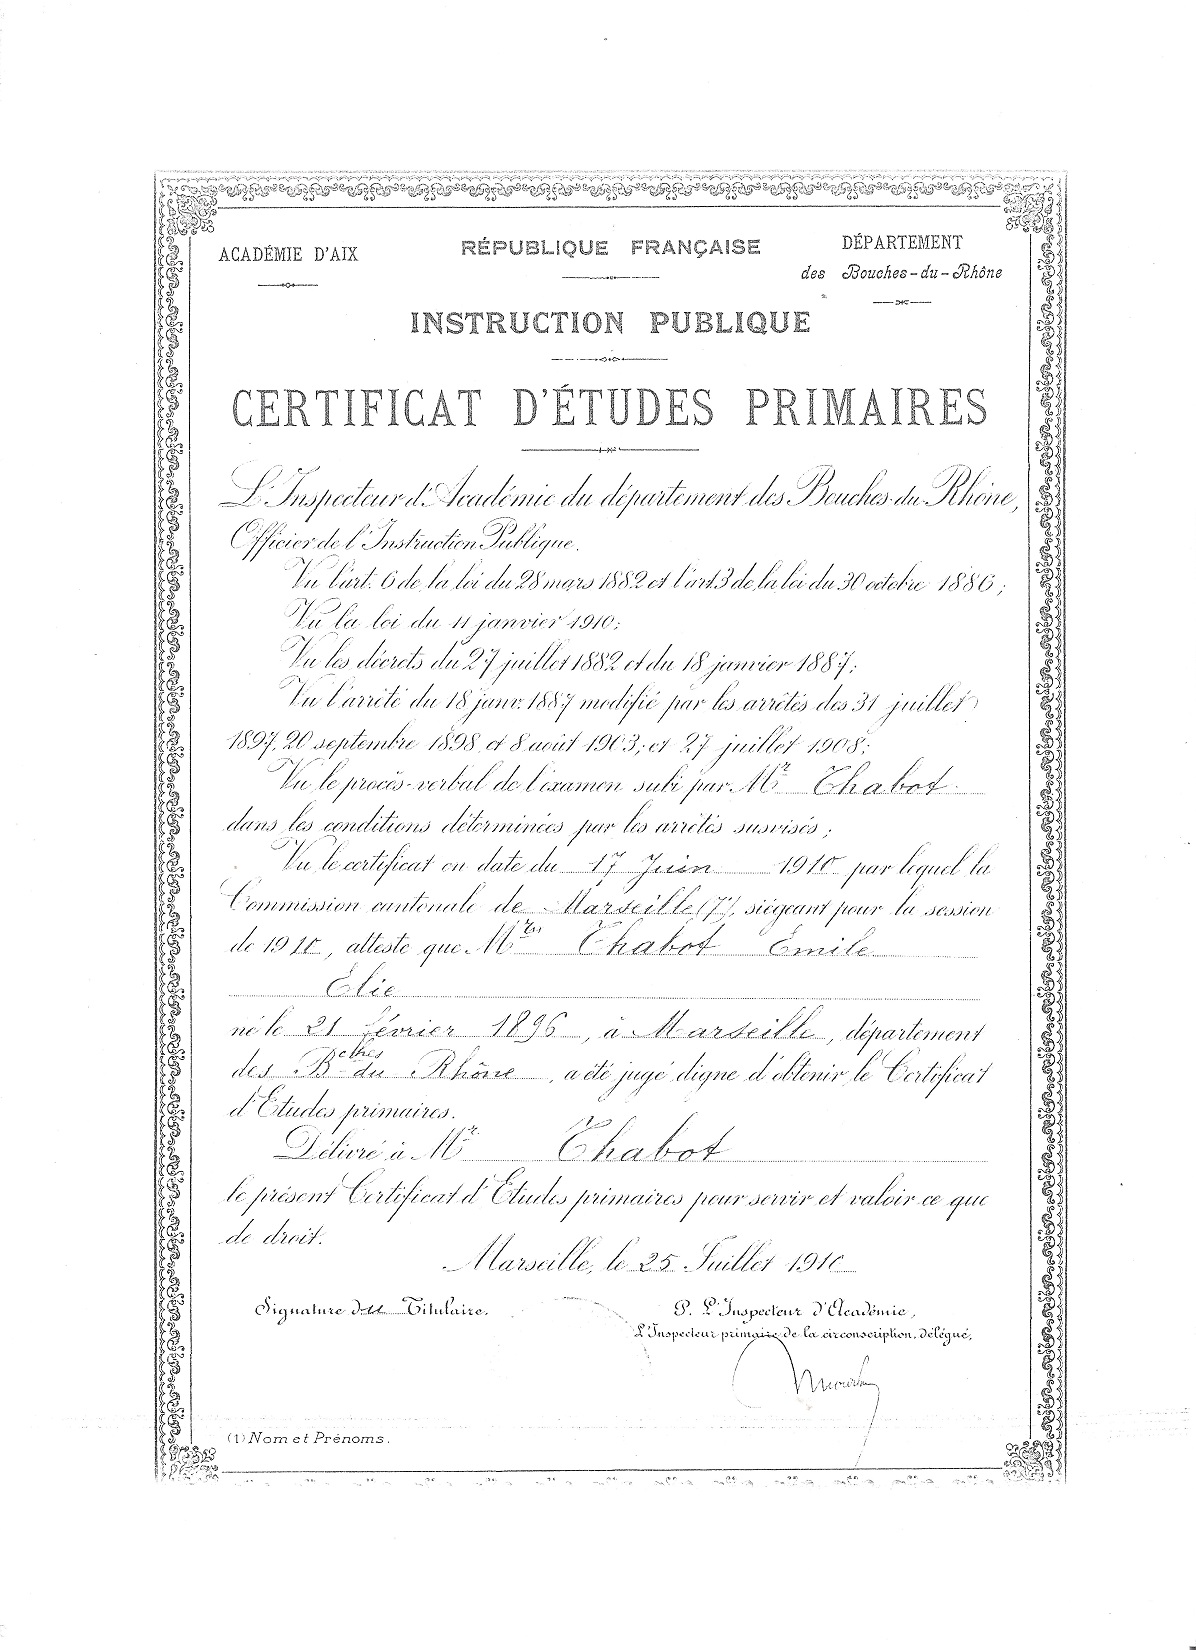 ACADÉMIE D'AIX
RÉPUBLIQUE FRANÇAISE
DÉPARTEMENT
des Bouches-du-Rhône
INSTRUCTION PUBLIQUE
CERTIFICAT D'ÉTUDES PRIMAIRES
L'Inspecteur d'Académie du département des Bouches-du-Rhône,
Officier de l'Instruction Publique.
Vu l'art. 6 de la loi du 28 mars 1882 et l'art. 3 de la loi du 30 octobre 1886;
Vu la loi du 11 janvier 1910;
Vu les décrets du 27 juillet 1882 et du 18 janvier 1887;
Vu l'arrêté du 18 janv. 1887 modifié par les arrêtés des 31 juillet
1897, 20 septembre 1898, et 8 août 1903; et 27 juillet 1908;
Vu le procès-verbal de l'examen subi par Mr Chabot
dans les conditions déterminées par les arrêtés susvisés;
Vu le certificat en date du 17 Juin 1910 par lequel la
Commission cantonale de Marseille (7e), siégeant pour la session
de 1910, atteste que Mr Chabot Emile
Elie
né le 21 février 1896, à Marseille, département
des Bches du Rhône, a été jugé digne d'obtenir le Certificat
d'Etudes primaires.
Délivré à Mr Chabot
le présent Certificat d'Etudes primaires pour servir et valoir ce que
de droit.
Marseille, le 25 Juillet 1910
Signature du Titulaire.
P. L'Inspecteur d'Académie,
L'Inspecteur primaire de la circonscription, délégué,
(1) Nom et Prénoms.